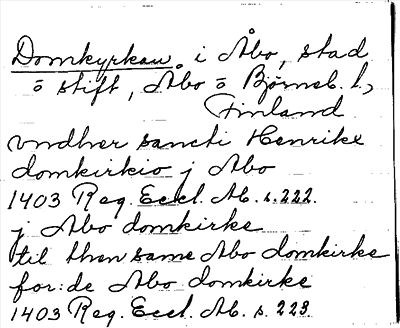 Domkyrkan i Åbo, stad
o stift, Åbo o Björneb. l.,
Finland
vndher sancti Henrike
domkirkio j Abo
1403 Reg. Eccl. Ab. s. 222.
j Abo domkirke
til then same Abo domkirke
for:de Abo domkirke
1403 Reg. Eccl. Ab. s. 223.